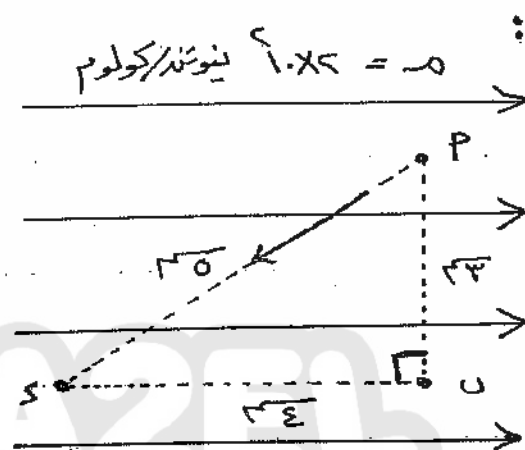 مـ = ٢×١٠٢ نيوتن/كولوم
م
٥م
٣م
د
ب
٤م